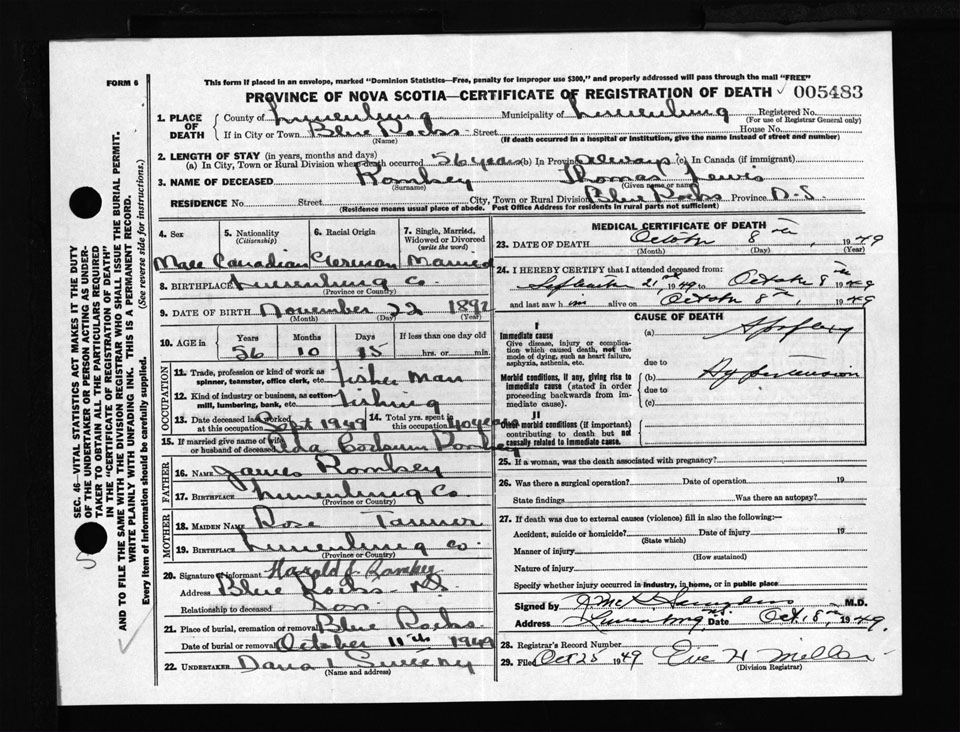 FORM 6
This form if placed in an envelope, marked "Dominion Statistics—Free, penalty for improper use $300," and properly addressed will pass through the mail "FREE"
PROVINCE OF NOVA SCOTIA—CERTIFICATE OF REGISTRATION OF DEATH 005483
1. PLACE OF DEATH County of Lunenburg Municipality of Lunenburg Registered No.
(For use of Registrar General only)
If in City or Town Blue Rocks Street House No.
(Name) (If death occurred in a hospital or institution, give the name instead of street and number)
2. LENGTH OF STAY (in years, months and days)
(a) In City, Town or Rural Division where death occurred 56 years (b) In Province always (c) In Canada (if immigrant)
3. NAME OF DECEASED Romkey Thomas Lewis
(Surname) (Given name or names)
RESIDENCE No. Street City, Town or Rural Division Blue Rocks Province N.S.
(Residence means usual place of abode. Post Office Address for residents in rural parts not sufficient)
4. Sex 5. Nationality (Citizenship) 6. Racial Origin 7. Single, Married, Widowed or Divorced (write the word)
Male Canadian German Married
8. BIRTHPLACE Lunenburg Co.
(Province or Country)
9. DATE OF BIRTH November 22 1892
(Month) (Day) (Year)
10. AGE in Years Months Days If less than one day
56 10 15 hrs. or min.
OCCUPATION
11. Trade, profession or kind of work as spinner, teamster, office clerk, etc. Fisher Man
12. Kind of industry or business, as cotton-mill, lumbering, bank, etc. Fishing
13. Date deceased last worked at this occupation Sept 1949 14. Total yrs. spent in this occupation 40 years
15. If married give name of wife or husband of deceased Romkey
FATHER
16. NAME James Romkey
17. BIRTHPLACE Lunenburg Co.
(Province or Country)
MOTHER
18. MAIDEN NAME Rose Tanner
19. BIRTHPLACE Lunenburg Co.
(Province or Country)
20. Signature of informant Harold J. Romkey
Address Blue Rocks N.S.
Relationship to deceased Son
21. Place of burial, cremation or removal Blue Rocks
Date of burial or removal October 11th 1949
22. UNDERTAKER Dana L Sweeny
(Name and address)
MEDICAL CERTIFICATE OF DEATH
23. DATE OF DEATH October 8th, 1949
(Month) (Day) (Year)
24. I HEREBY CERTIFY that I attended deceased from:
September 21st 1949 to October 8th 1949
and last saw him alive on October 8th, 1949
CAUSE OF DEATH
I
Immediate cause (a) Apoplexy
Give disease, injury or complication which caused death, not the mode of dying, such as heart failure, asphyxia, asthenia, etc.
due to
Morbid conditions, if any, giving rise to immediate cause (stated in order proceeding backwards from immediate cause). (b) Hypertension
due to
(c)
II
Other morbid conditions (if important) contributing to death but not causally related to immediate cause.
25. If a woman, was the death associated with pregnancy?
26. Was there a surgical operation? Date of operation 19
State findings Was there an autopsy?
27. If death was due to external causes (violence) fill in also the following:—
Accident, suicide or homicide? Date of injury 19
(State which)
Manner of injury
(How sustained)
Nature of injury
Specify whether injury occurred in industry, in home, or in public place
Signed by M.D.
Address Lunenburg N.S. Date Oct. 18, 1949.
28. Registrar's Record Number
29. Filed Oct 25 1949
(Division Registrar)
SEC. 46—VITAL STATISTICS ACT MAKES IT THE DUTY
OF THE UNDERTAKER OR PERSON ACTING AS UNDER-
TAKER "TO OBTAIN ALL THE PARTICULARS REQUIRED
IN THE "CERTIFICATE OF REGISTRATION OF DEATH"
AND TO FILE THE SAME WITH THE DIVISION REGISTRAR WHO SHALL ISSUE THE BURIAL PERMIT.
WRITE PLAINLY WITH UNFADING INK. THIS IS A PERMANENT RECORD.
Every item of Information should be carefully supplied. (See reverse side for instructions.)